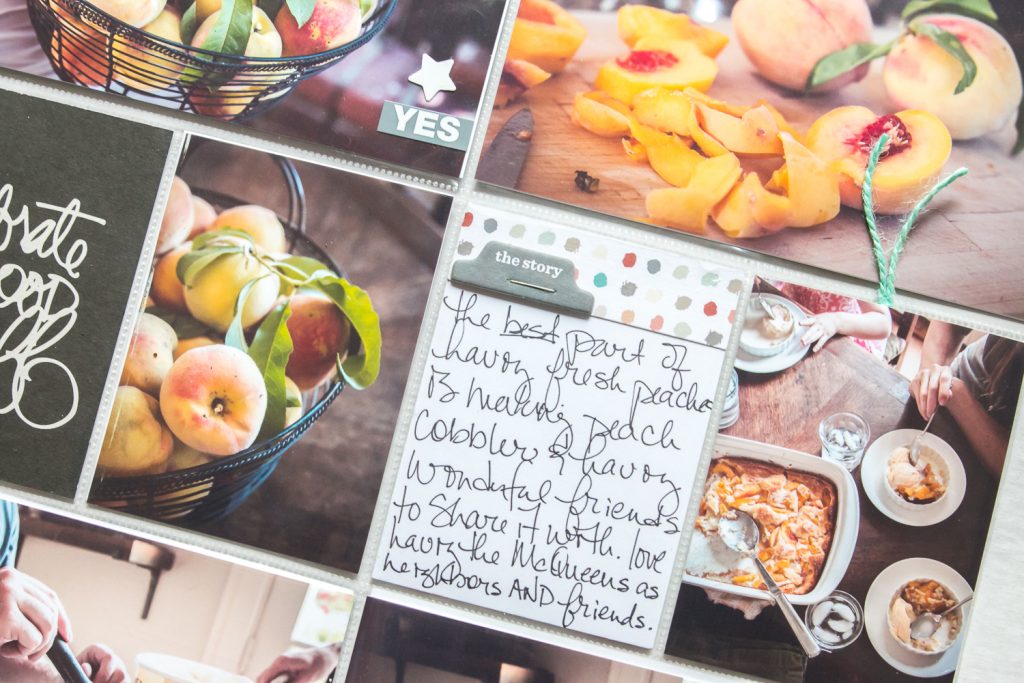 YES
brate
ood
the story
the best part of
having fresh peaches
is making peach
cobbler & having
wonderful friends
to share it with. love
having the McQueens as
neighbors AND friends.